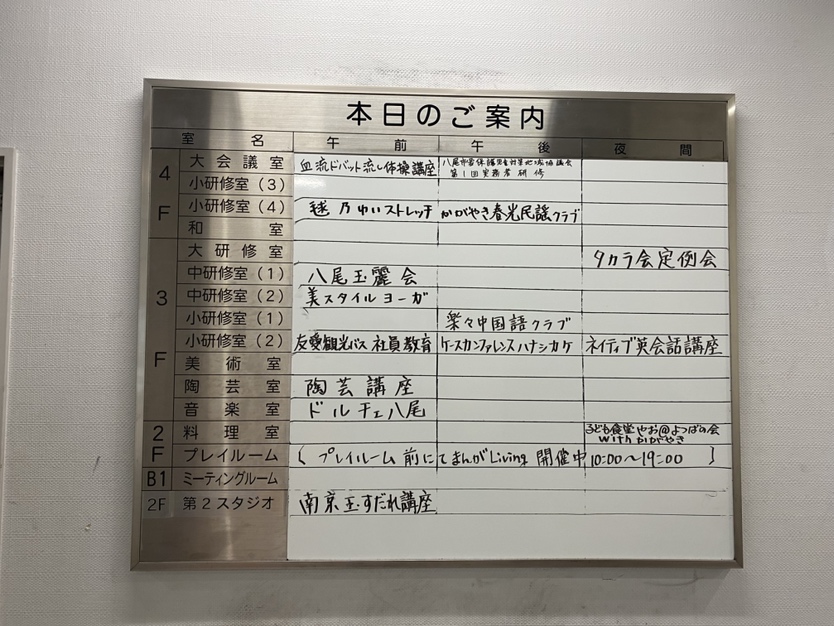 本日のご案内
室名 午前 午後 夜間
4F 大会議室 血流ドバット流し体操講座 八尾市要保護児童対策地域協議会
第1回実務者研修
小研修室(3)
小研修室(4) 毬乃ゆいストレッチ かがやき春光民謡クラブ
和室
3F 大研修室 タカラ会定例会
中研修室(1) 八尾玉麗会
中研修室(2) 美スタイルヨーガ
小研修室(1) 楽々中国語クラブ
小研修室(2) 友愛観光バス 社員教育 ケースカンファレンスハナシカケ ネイティブ英会話講座
美術室
陶芸室 陶芸講座
音楽室 ドルチェ八尾
2F 料理室 子ども食堂やお@よつばの会
withかがやき
プレイルーム ( プレイルーム前にてまんがLiving 開催中 10:00〜19:00 )
B1 ミーティングルーム
2F 第2スタジオ 南京玉すだれ講座